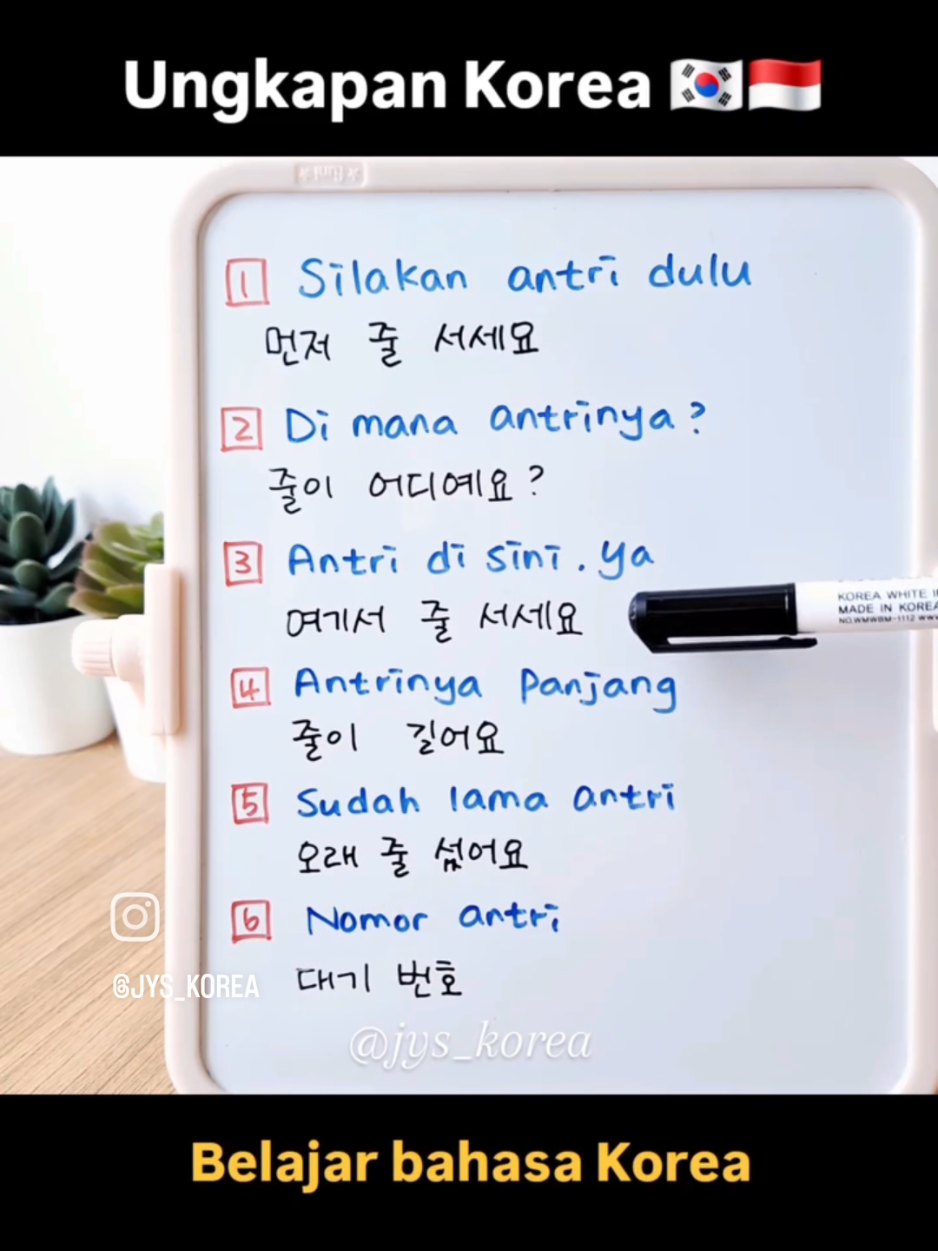 Ungkapan Korea
1 Silakan antri dulu
먼저 줄 서세요
2 Di mana antrinya?
줄이 어디예요?
3 Antri di sini. ya
여기서 줄 서세요
KOREA WHITE
MADE IN KOREA
4 Antrinya panjang
줄이 길어요
5 Sudah lama antri
오래 줄 섰어요
6 Nomor antri
대기 번호
@JYS_KOREA
@jys_korea
Belajar bahasa Korea